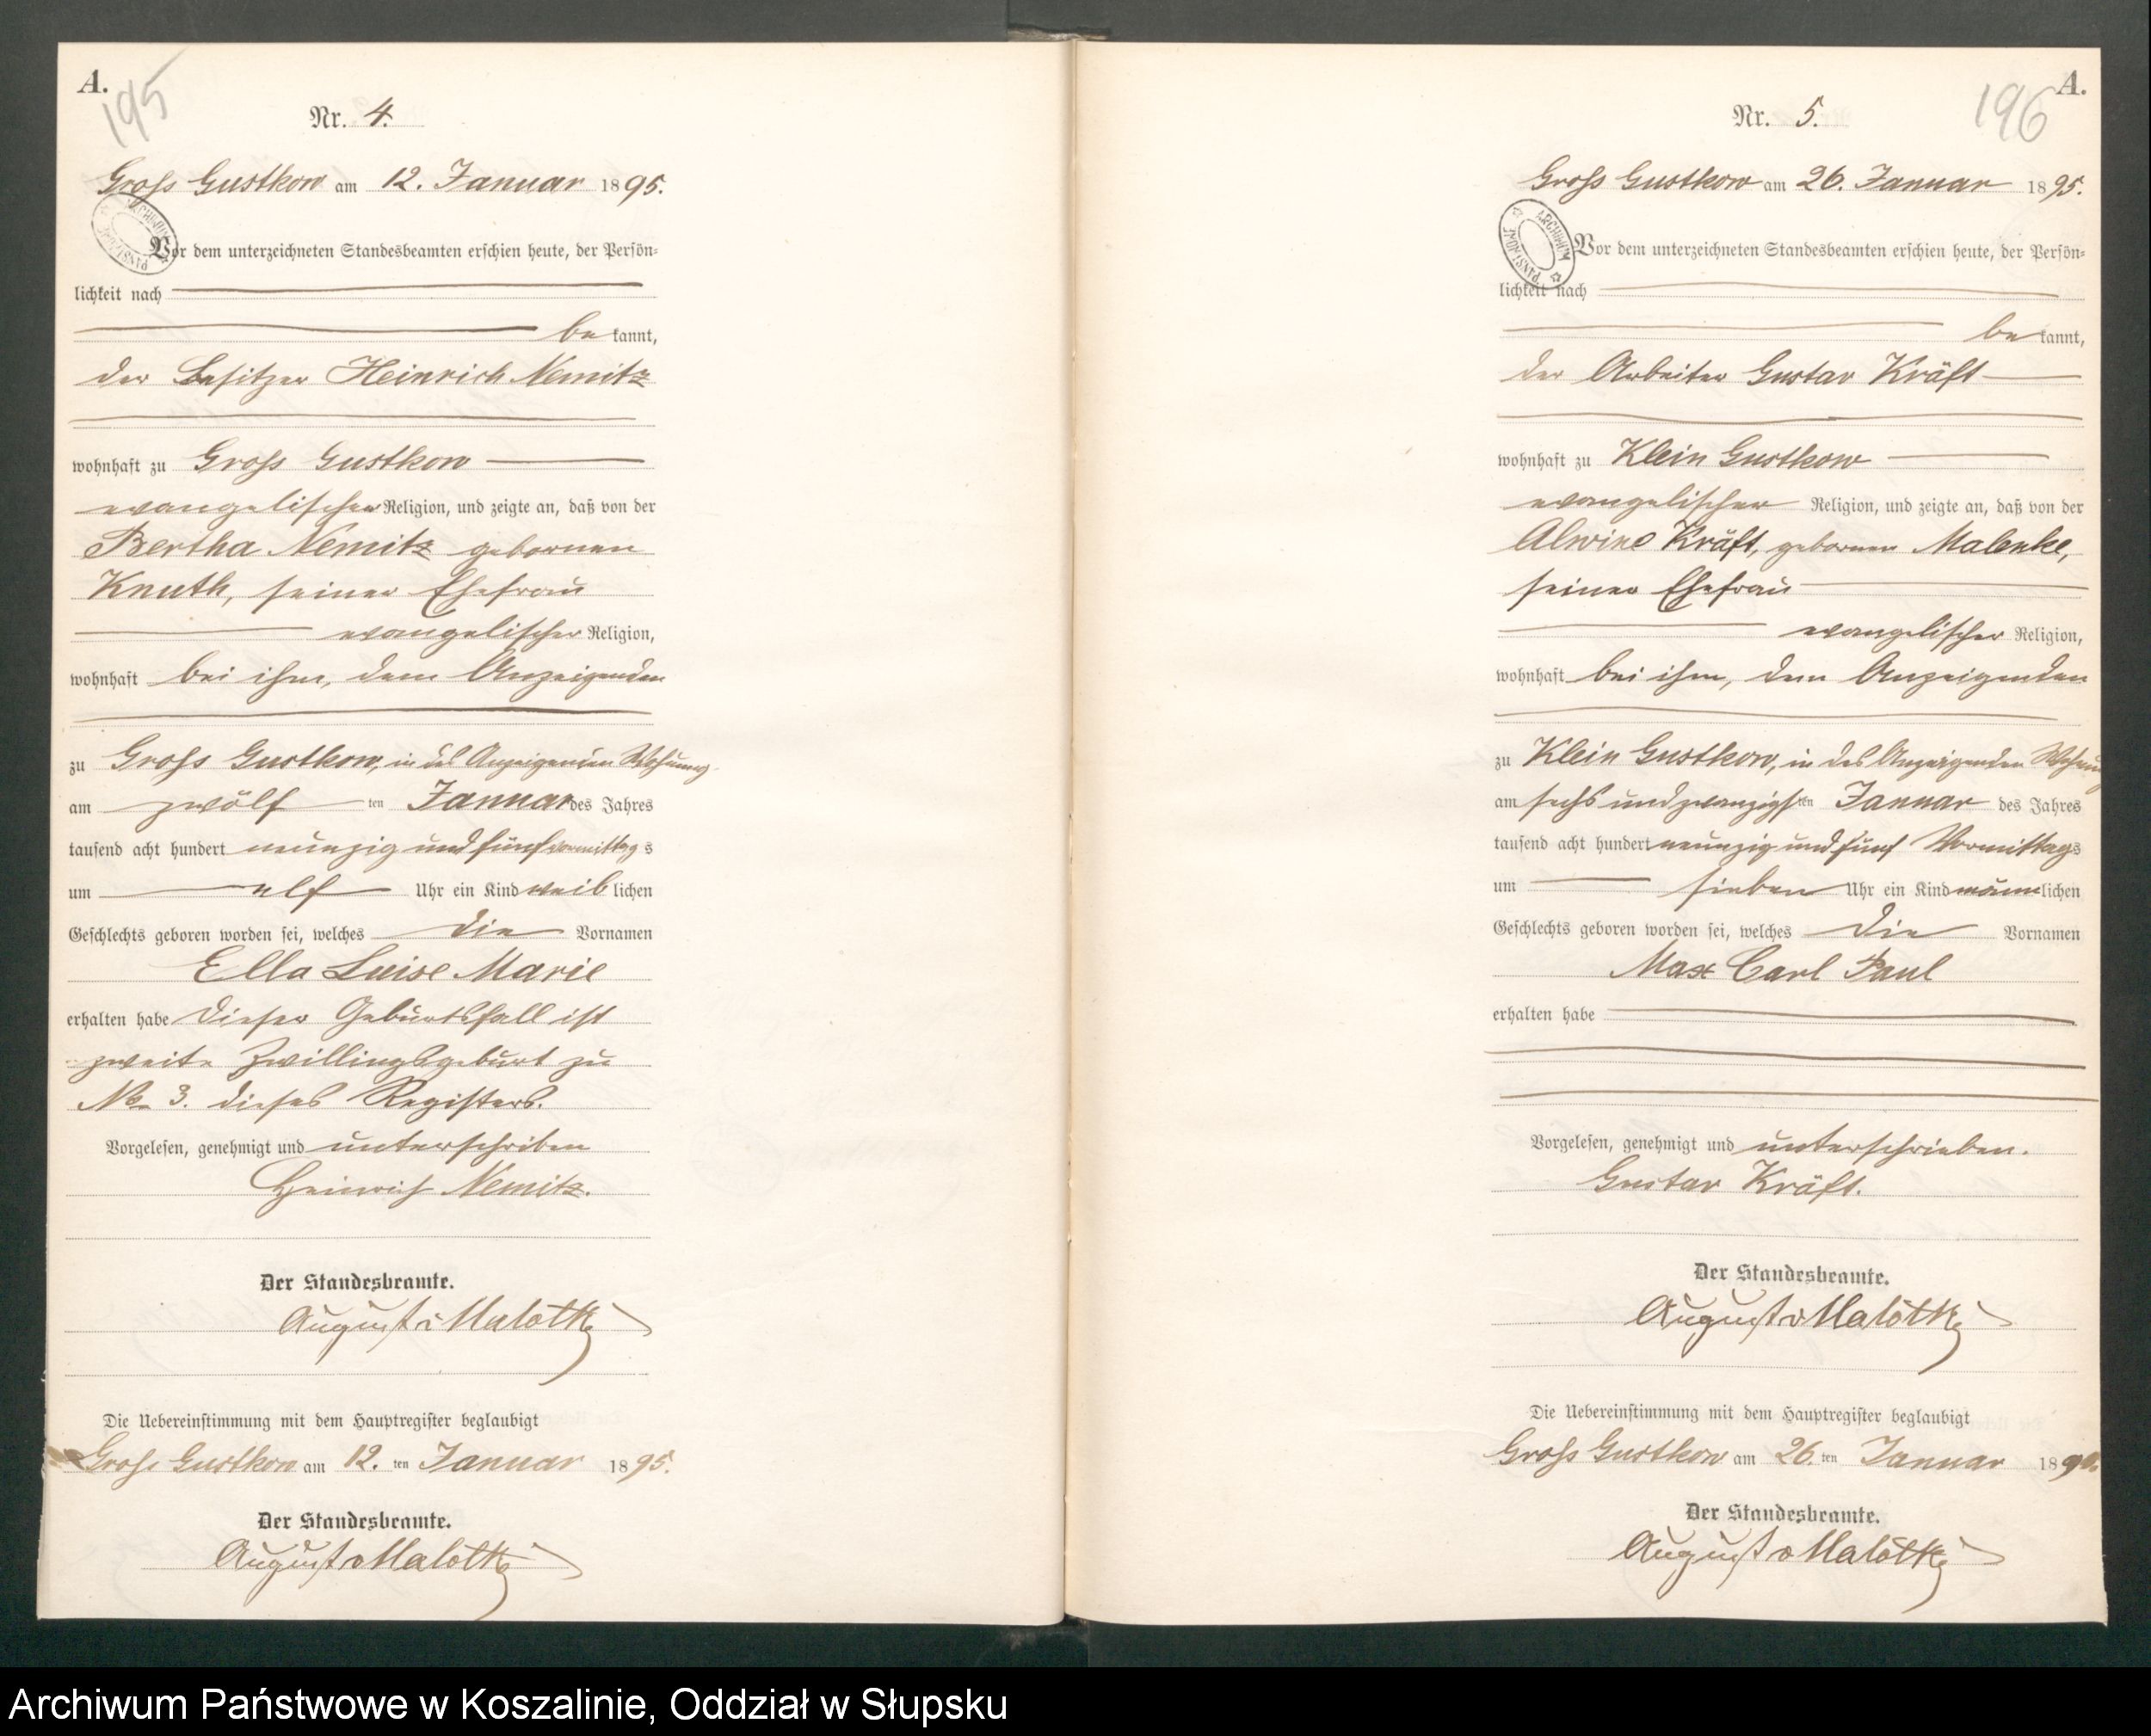 A.
195
Nr. 4.
Gross Gustkow am 12. Januar 1895.
Vor dem unterzeichneten Standesbeamten erschien heute, der Persön-
lichkeit nach
bekannt,
der Besitzer Heinrich Nemitz
wohnhaft zu Gross Gustkow
evangelischer Religion, und zeigte an, daß von der
Bertha Nemitz gebornen
Knuth, seiner Ehefrau
evangelischer Religion,
wohnhaft bei ihm, dem Anzeigenden
zu Gross Gustkow, in des Anzeigenden Wohnung
am zwölf ten Januar des Jahres
tausend acht hundert neunzig und fünf vormittags
um elf Uhr ein Kind weiblichen
Geschlechts geboren worden sei, welches die Vornamen
Ella Luise Marie
erhalten habe Dieser Geburtsfall ist
zweite Zwillingsgeburt zu
No 3. dieses Registers.
Vorgelesen, genehmigt und unterschriben
Heinrich Nemitz.
Der Standesbeamte.
August v Malottki
Die Uebereinstimmung mit dem Hauptregister beglaubigt
Gross Gustkow am 12. ten Januar 1895.
Der Standesbeamte.
August v Malottki
A.
196
Nr. 5.
Gross Gustkow am 26. Januar 1895.
ARCHIWUM PAŃSTWOWE
Vor dem unterzeichneten Standesbeamten erschien heute, der Persön-
lichkeit nach
bekannt,
der Arbeiter Gustav Kräft
wohnhaft zu Klein Gustkow
evangelischer Religion, und zeigte an, daß von der
Alwine Kräft, gebornen Malenke,
seiner Ehefrau
evangelischer Religion,
wohnhaft bei ihm, dem Anzeigenden
zu Klein Gustkow, in des Anzeigenden Wohnung
am sechs und zwanzigsten Januar des Jahres
tausend acht hundert neunzig und fünf Vormittags
um sieben Uhr ein Kind männlichen
Geschlechts geboren worden sei, welches die Vornamen
Max Carl Paul
erhalten habe
Vorgelesen, genehmigt und unterschrieben.
Gustav Kräft.
Der Standesbeamte.
August v Malottki
Die Uebereinstimmung mit dem Hauptregister beglaubigt
Gross Gustkow am 26. ten Januar 18
Der Standesbeamte.
August v Malottki
Archiwum Państwowe w Koszalinie, Oddział w Słupsku